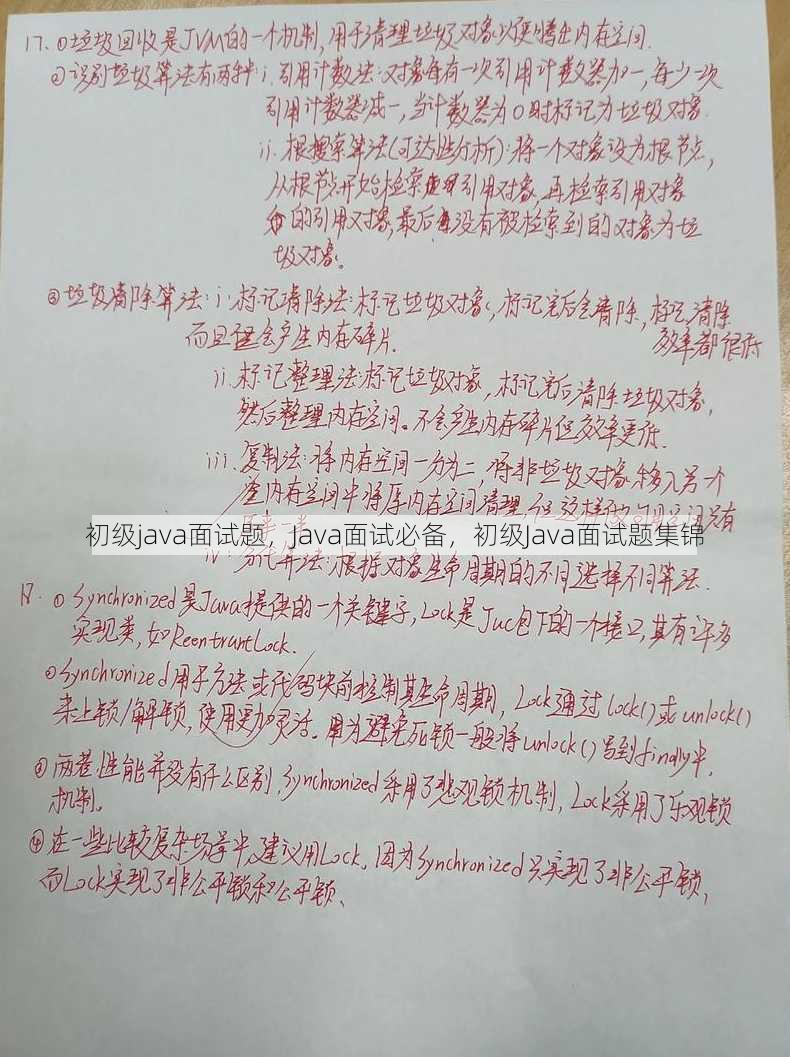 17. ①垃圾回收是JVM的一个机制,用于清理垃圾对象以便腾出内存空间.
②识别垃圾算法有两种: i. 引用计数法:对象每有一次引用计数器加一,每少一次
引用计数器减一,当计数器为0时标记为垃圾对象.
ii. 根搜索算法(可达性分析):将一个对象设为根节点,
从根节点开始检索引用对象,再检索引用对象
的引用对象,最后没有被检索到的对象为垃
圾对象。
③垃圾清除算法: i. 标记清除法:标记垃圾对象,标记完后会清除,标记清除
效率都很低
而且还会产生内存碎片.
ii. 标记整理法:标记垃圾对象,标记完后清除垃圾对象,
然后整理内存空间。不会产生内存碎片但效率更低.
iii. 复制法:将内存空间一分为二,将非垃圾对象移入另一个
空内存空间中将原内存空间清理,但这样可用空间只有
初级java面试题，java面试必备，初级Java面试题集锦
iv. 分代算法:根据对象生命周期的不同选择不同算法.
18. ① Synchronized是Java提供的一个关键字,Lock是Juc包下的一个接口,其有许多
实现类,如ReentrantLock.
②Synchronized用于方法或代码块前控制其生命周期, Lock通过lock()或unlock()
来上锁/解锁,使用更加灵活。因为避免死锁一般将unlock()写到finally中,
③两者性能并没有什么区别,Synchronized采用了悲观锁机制, Lock采用了乐观锁
机制。
④在一些比较复杂场景中,建议用Lock。因为Synchronized只实现了非公平锁,
而Lock实现了非公平锁和公平锁、